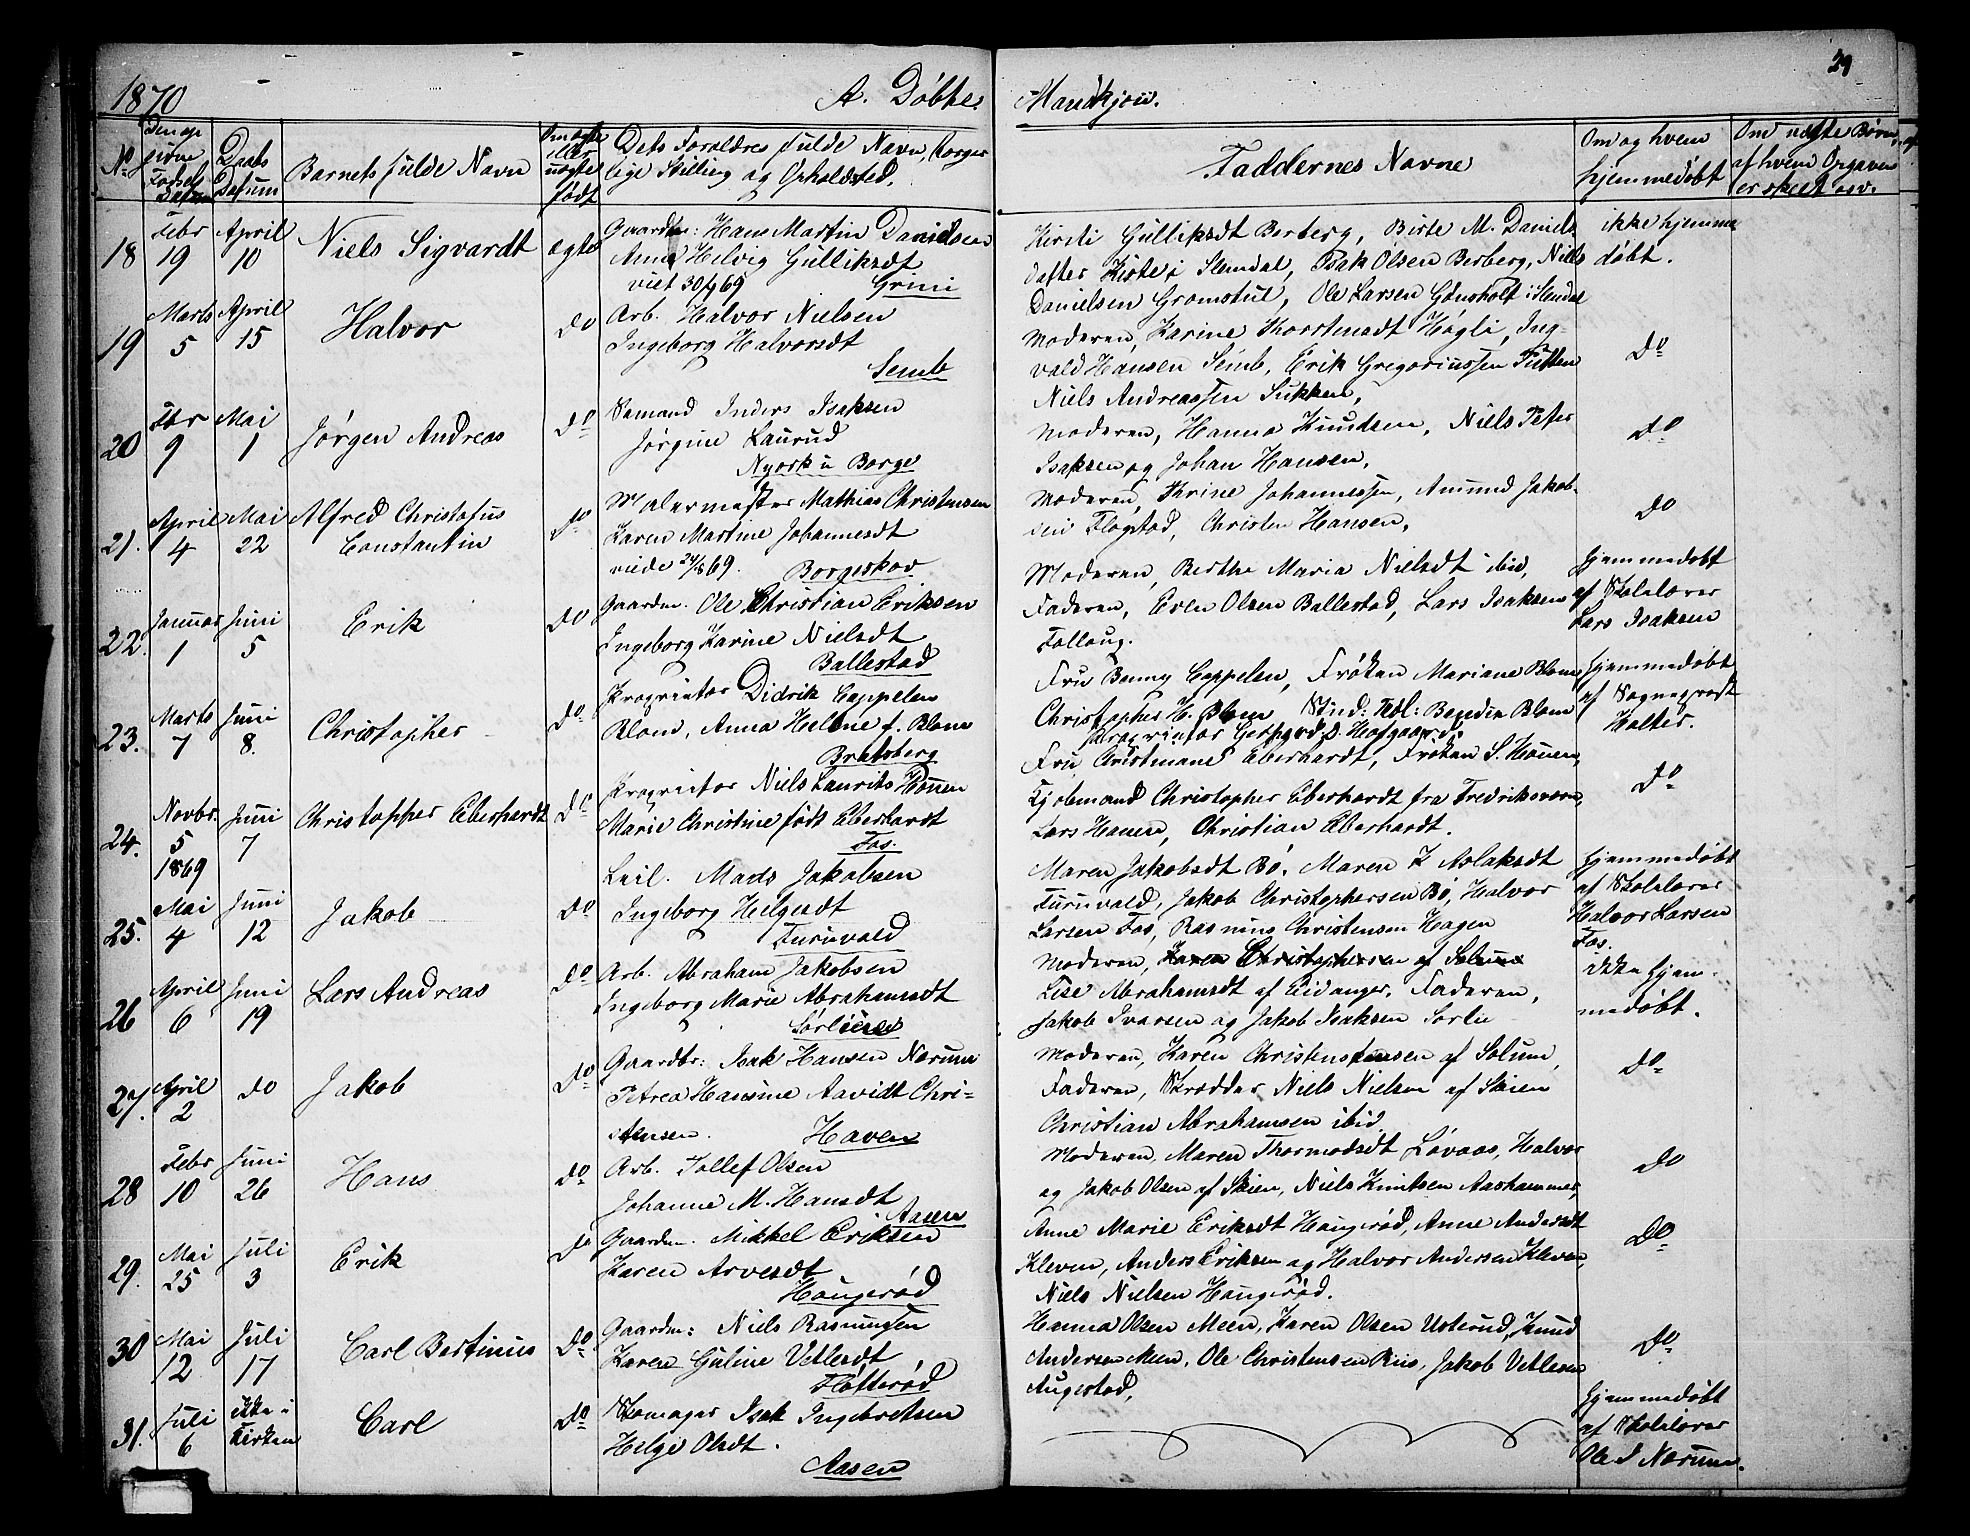 1870 A. Døbte Mandkjøn. 29
No Den opgivne Fødsels Datum Daabs Datum Barnets fulde Navn Om ægte eller uægte født Dets Forældres fulde Navn, Borgerlige Stilling og Opholdssted. Faddernes Navne Om og hvem hjemmedøbt Om uægte Børn, af hvem Opgaven er skeet osv.
18 Febr 19 April 10 Niels Sigvardt ægte
Gaardm: Hans Martin Danielsen
Anne Helvig Gulliksdt
viet 30/9 69 Grini
Kirsti Gulliksdt Berberg, Birte M. Daniels
datter Kiste i Slemdal, Isak Olsen Berberg, Niels
Danielsen Gromstul, Ole Larsen Gonsholt i Slemdal
ikke hjemme
døbt.
19 Marts 5 April 15 Halvor do
Arb. Halvor Nielsen
Ingeborg Halvorsdt
Semb
Moderen, Karine Thorstensdt Høgli, Ing-
vald Hansen Semb, Erik Gregoriussen
Niels Andreassen
do
20 Fbr 9 Mai 1 Jørgen Andreas do
Sømand Anders Isaksen
Jørgine Laurud
Nyork i Borge
Moderen, Hanna Knudsen, Niels Peter
Isaksen og Johan Hansen,
do
21. April 4 Mai 22 Alfred Christofus
Constantin do
Malermester Mathias Christensen
Karen Martine Johannesdt
viede 69. Borgeskov
Moderen, Thrine Johannessen, Amund Jakob-
sen Flogstad, Christen Hansen,
do
22. Januar 1 Juni 5 Erik do
Gaardm. Ole Christian Eriksen
Ingeborg Karine Nielsdt
Ballestad
Moderen, Berthe Maria Nielsdt ibid,
Faderen, Even Olsen Ballestad, Lars Isaksen
Follaug.
Hjemmedøbt
af Skolelærer
Lars Isaksen
23. Marts 7 Juni 8. Christopher do
Proprietær Didrik Cappelen
Blom, Anna Helene f. Blom
Bratsberg
Fru Benny Cappelen, Frøken Mariane Blom
Christopher H. Blom Stud: Benedix Blom
Proprietær
Hjemmedøbt
af Sogneprest
Halter.
24. Novbr. 5 1869 Juni 7 Christopher Eberhardt do
Proprietær Niels Laurits Houen
Marie Christine født Eberhardt
Fos.
Fru Christmane Eberhardt, Frøken S. Houen,
Kjøbmand Christopher Eberhardt fra Fredriksværn,
Lars Houen, Christian Eberhardt.
do
25. Mai 4 Juni 12 Jakob do
Leil. Mads Jakobsen
Ingeborg Helgesdt
Furuvald
Maren Jakobsdt Bø, Maren K Aslaksdt
Furuvald, Jakob Christophersen Bø, Halvor
Larsen Fos, Rasmus Christensen Hagen
Hjemmedøbt
af Skolelærer
Halvor Larsen
Fos.
26 April 6 Juni 19 Lars Andreas do
Arb. Abraham Jakobsen
Ingeborg Marie Abrahamsdt
Sørlie
Moderen, Karen Christophersen af Solum
Lise Abrahamsdt af Eidanger, Faderen,
Jakob Ivarsen og Jakob Isaksen Sørlie
ikke hjem-
medøbt.
27. April 2 do Jakob do
Gaardbr: Isak Hansen Nærum
Petrea Hansine Aavidt Chri-
stensen. Haven
Moderen, Karen Christensen af Solum,
Faderen, Skrædder Niels Nielsen af Skien
Christian Abrahamsen ibid
do
28 Febr 10 Juni 26 Hans do
Arb. Tollef Olsen
Johanne M. Hansdt
Aasen
Moderen, Maren Thormodsdt Løvaas, Halvor
og Jakob Olsen af Skien, Niels Knutsen Aashammer,
do
29. Mai 25 Juli 3 Erik do
Gaardm. Mikkel Eriksen
Karen Arvesdt
Haugerød
Anne Marie Eriksdt Haugerød, Anne Andersdt
Kleven, Anders Eriksen og Halvor Andersen Kleven,
Niels Nielsen Haugerød.
do
30 Mai 12 Juli 17 Carl Bertinius do
Gaardm: Niels Rasmussen
Karen Guline Vetlesdt
Flotterød
Hanna Olsen Meen, Karen Olsen Usterud, Knud
Andersen Meen, Ole Christensen Riis, Jakob Vetlesen
Augestad,
do
31. Juli 6 ikke i Kirken Carl do
Skomager Isak Ingebretsen
Helge Olsdt.
Aasen
Hjemmedøbt
af Skolelærer
Ole I Nærum.